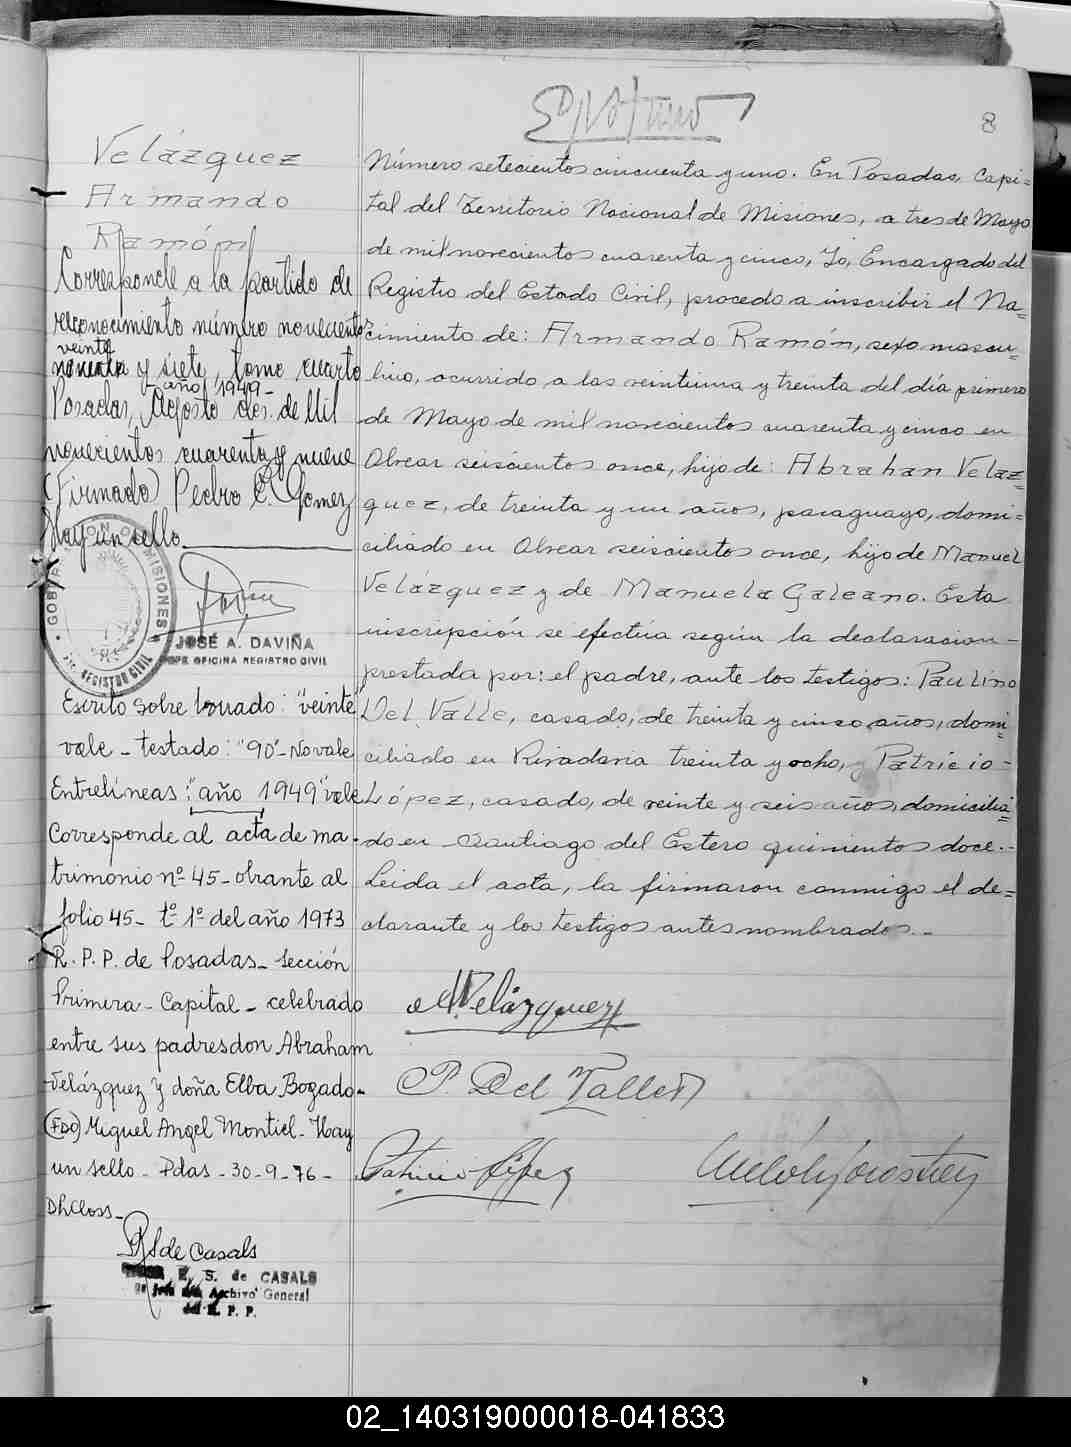 8
Velázquez
Armando
Ramón
Corresponde a la partida de
reconocimiento número novecientos
veinte
y siete, tomo cuarto
año 1949-
Posadas, Agosto dos de Mil
novecientos cuarenta y nueve
(Firmado) Pedro C. Gomez
Hay un sello.
MISIONES
REGISTRO CIVIL
JOSÉ A. DAVIÑA
JEFE OFICINA REGISTRO CIVIL
Escrito sobre borrado: "veinte"
vale - testado: "90" - No vale
Entrelíneas: "año 1949" vale
Corresponde al acta de ma-
trimonio nº 45 - obrante al
folio 45 - tº 1º del año 1973
R. P. P. de Posadas - sección
Primera - Capital - celebrado
entre sus padres don Abraham
Velázquez y doña Elba Bogado-
(FDO) Miguel Angel Montiel - Hay
un sello - Pdas - 30-9-76 -
S de Casals
E. S. de CASALS
Archivo General
del R. P. P.
Número setecientos cincuenta y uno. En Posadas, Capi=
tal del Territorio Nacional de Misiones, a tres de Mayo
de mil novecientos cuarenta y cinco, Yo, Encargado del
Registro del Estado Civil, procedo a inscribir el Na=
cimiento de: Armando Ramón, sexo mascu=
lino, ocurrido a las veintiuna y treinta del día primero
de Mayo de mil novecientos cuarenta y cinco en
Alvear seiscientos once, hijo de: Abrahan Velaz=
quez, de treinta y un años, paraguayo, domi=
ciliado en Alvear seiscientos once, hijo de Manuel
Velázquez y de Manuela Galeano. Esta
inscripción se efectúa según la declaracion-
prestada por: el padre, ante los testigos: Paulino
Del Valle, casado, de treinta y cinco años, domi=
ciliado en Rivadavia treinta y ocho, y Patricio-
López, casado, de veinte y seis años, domicilia=
do en Santiago del Estero quinientos doce.-
Leida el acta, la firmaron conmigo el de=
clarante y los testigos antes nombrados.-
A Velázquez
P. Del Valle
Patricio López
02_140319000018-041833